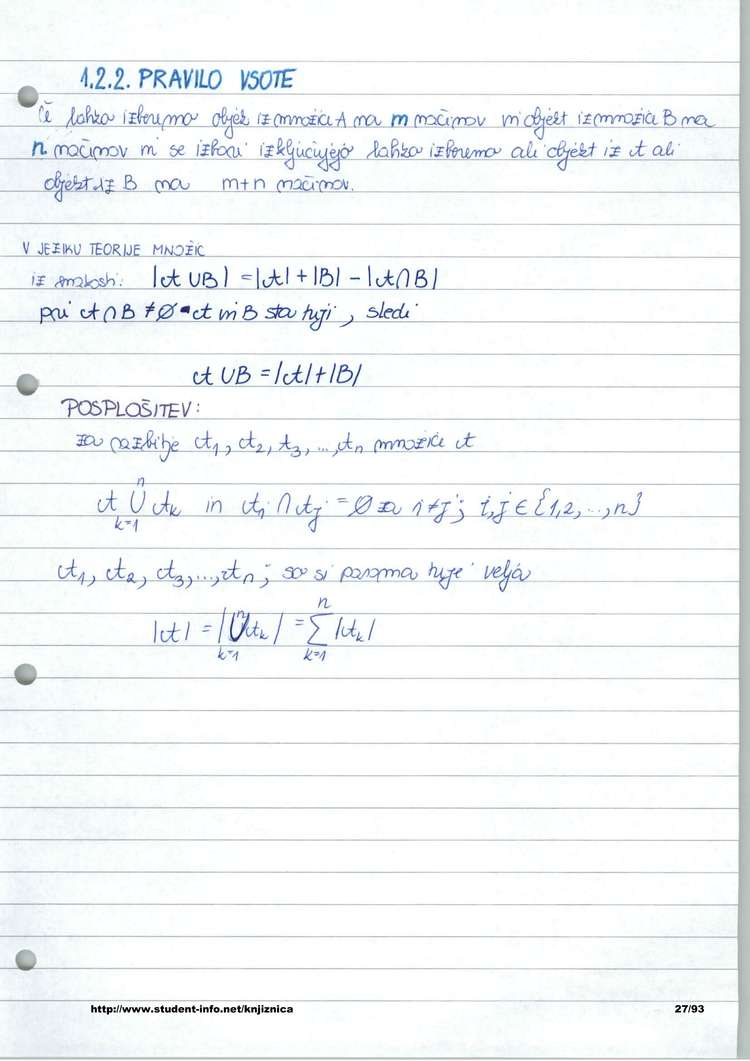 1.2.2. PRAVILO VSOTE
Če lahko izberemo objek iz množice A na m načinov in objekt iz množice B na
n načinov in se izbori izključujejo lahko izberemo ali objekt iz A ali
objekt iz B na m+n načinov.
V JEZIKU TEORIJE MNOŽIC
iz enakosti: |A ∪ B| = |A| + |B| - |A ∩ B|
pri A ∩ B ≠ ∅ A in B sta tuji, sledi
A ∪ B = |A| + |B|
POSPLOŠITEV:
za razbitje A₁, A₂, A₃, ..., Aₙ množice A
A ⋃ₖ₌₁ⁿ Aₖ in Aᵢ ∩ Aⱼ = ∅ za i ≠ j; i,j ∈ {1,2,...,n}
A₁, A₂, A₃, ..., Aₙ; so si paroma tuje velja
|A| = |⋃ₖ₌₁ⁿ Aₖ| = ∑ₖ₌₁ⁿ |Aₖ|
http://www.student-info.net/knjiznica 27/93